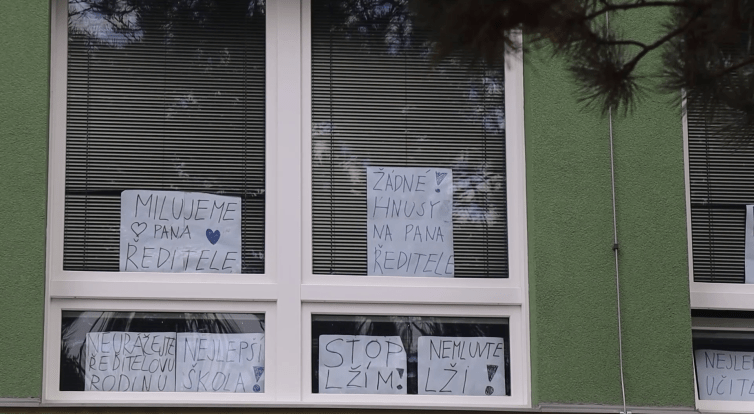 MILUJEME
PANA
ŘEDITELE
ŽÁDNÉ!
HNUSY
NA PANA
ŘEDITELE
NEURÁŽEJTE
ŘEDITELOVU
RODINU
NEJLEPŠÍ
ŠKOLA!
STOP
LŽÍM!
NEMLUVTE
LŽI!